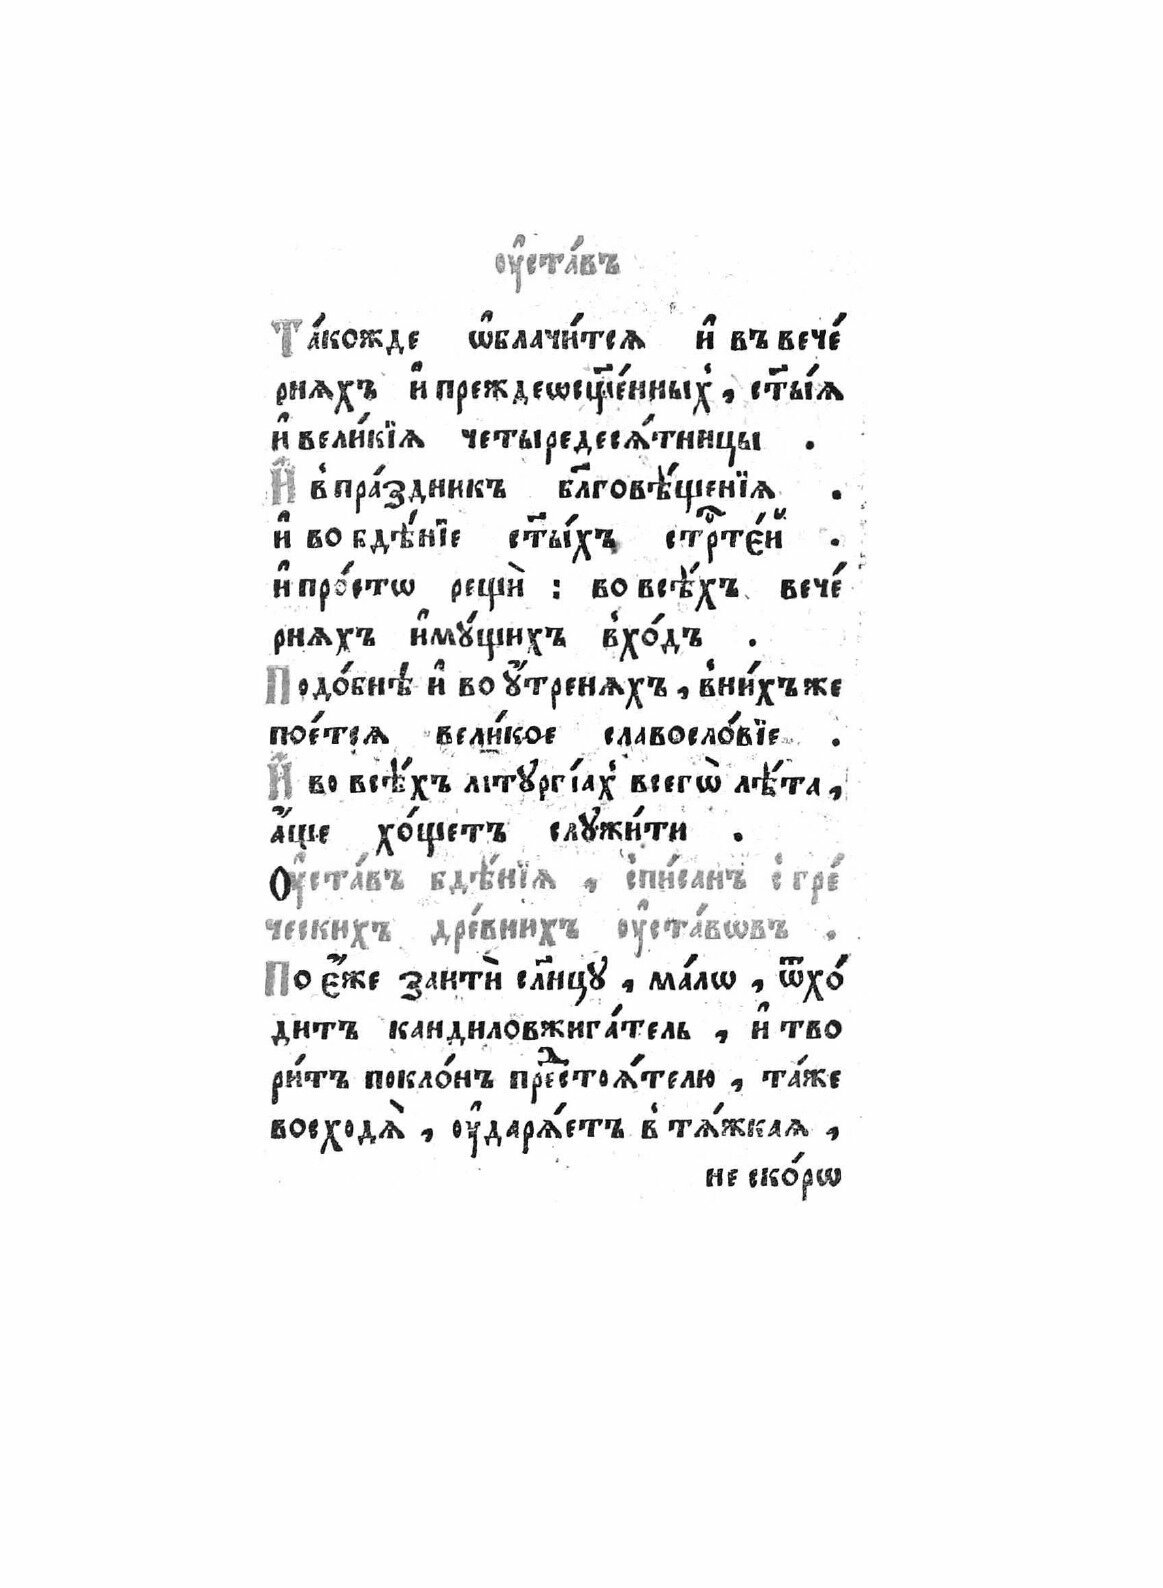 ѹ҆ста́въ
Та́кожде ѡ҆блачи́тсѧ и҆ въ вече́
рнѧхъ и҆ преждеѡсщ҃е́нныхъ, ст҃ы́ѧ
и҆ вели́кїѧ четыредесѧ́тницы .
И҆ в̾ пра́здникъ бл҃говѣ́щенїѧ .
и҆ во бдѣ́нїе ст҃ы́хъ стрⷭ҇те́й .
и҆ про́стѡ рещѝ : во всѣ́хъ вече́
рнѧхъ и҆мꙋ́щихъ в̾хо́дъ .
Подо́бнѣ и҆ во ꙋ҆́тренѧхъ, в̾ни́хъже
пое́тсѧ вели́кое славосло́вїе .
И҆ во всѣ́хъ лїтꙋргі́ахъ всегѡ̀ лѣ́та,
а҆́ще хо́щетъ слꙋжи́ти .
Оу҆ста́въ бдѣ́нїѧ , спи́санъ с̾ гре́
ческихъ дре́внихъ ѹ҆ста́вѡвъ .
По є҆́же заитѝ сл҃нцꙋ , ма́лѡ , ѿхо́
дитъ кандиловжига́тель , и҆ тво
ри́тъ покло́нъ предстоѧ́телю , та́же
восходѧ̀ , ѹ҆дарѧ́етъ в̾ тѧ́жкаѧ ,
не ско́рѡ